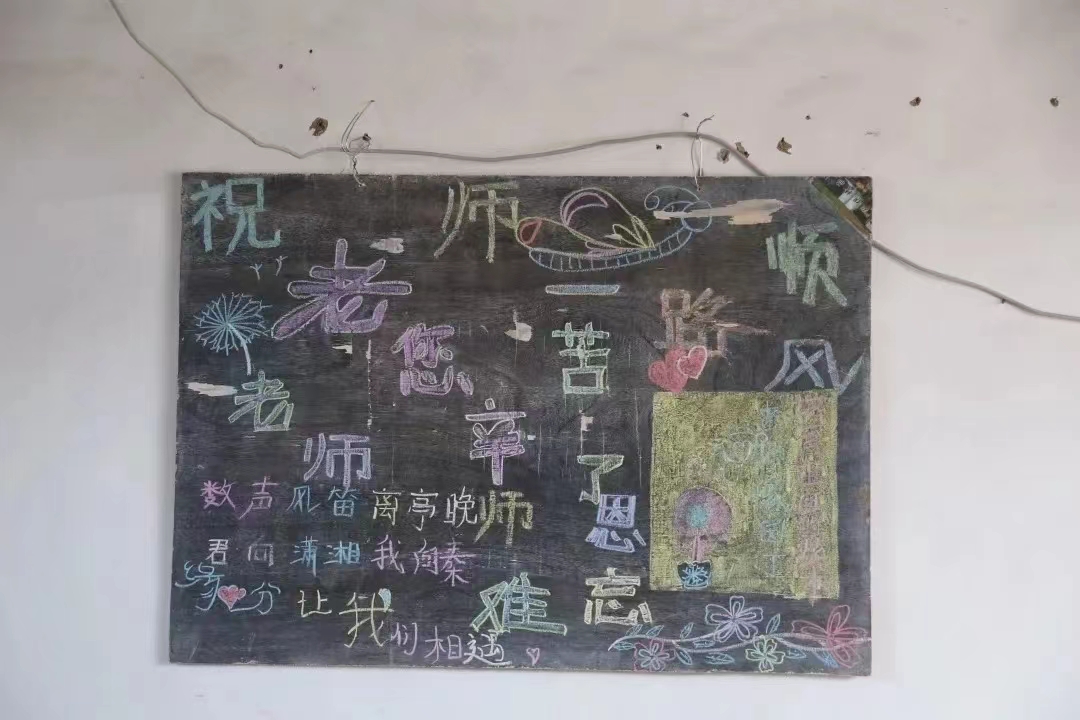 祝老师一路顺风
老师您辛苦了
师恩难忘
数声风笛离亭晚
君向潇湘我向秦
缘分让我们相遇